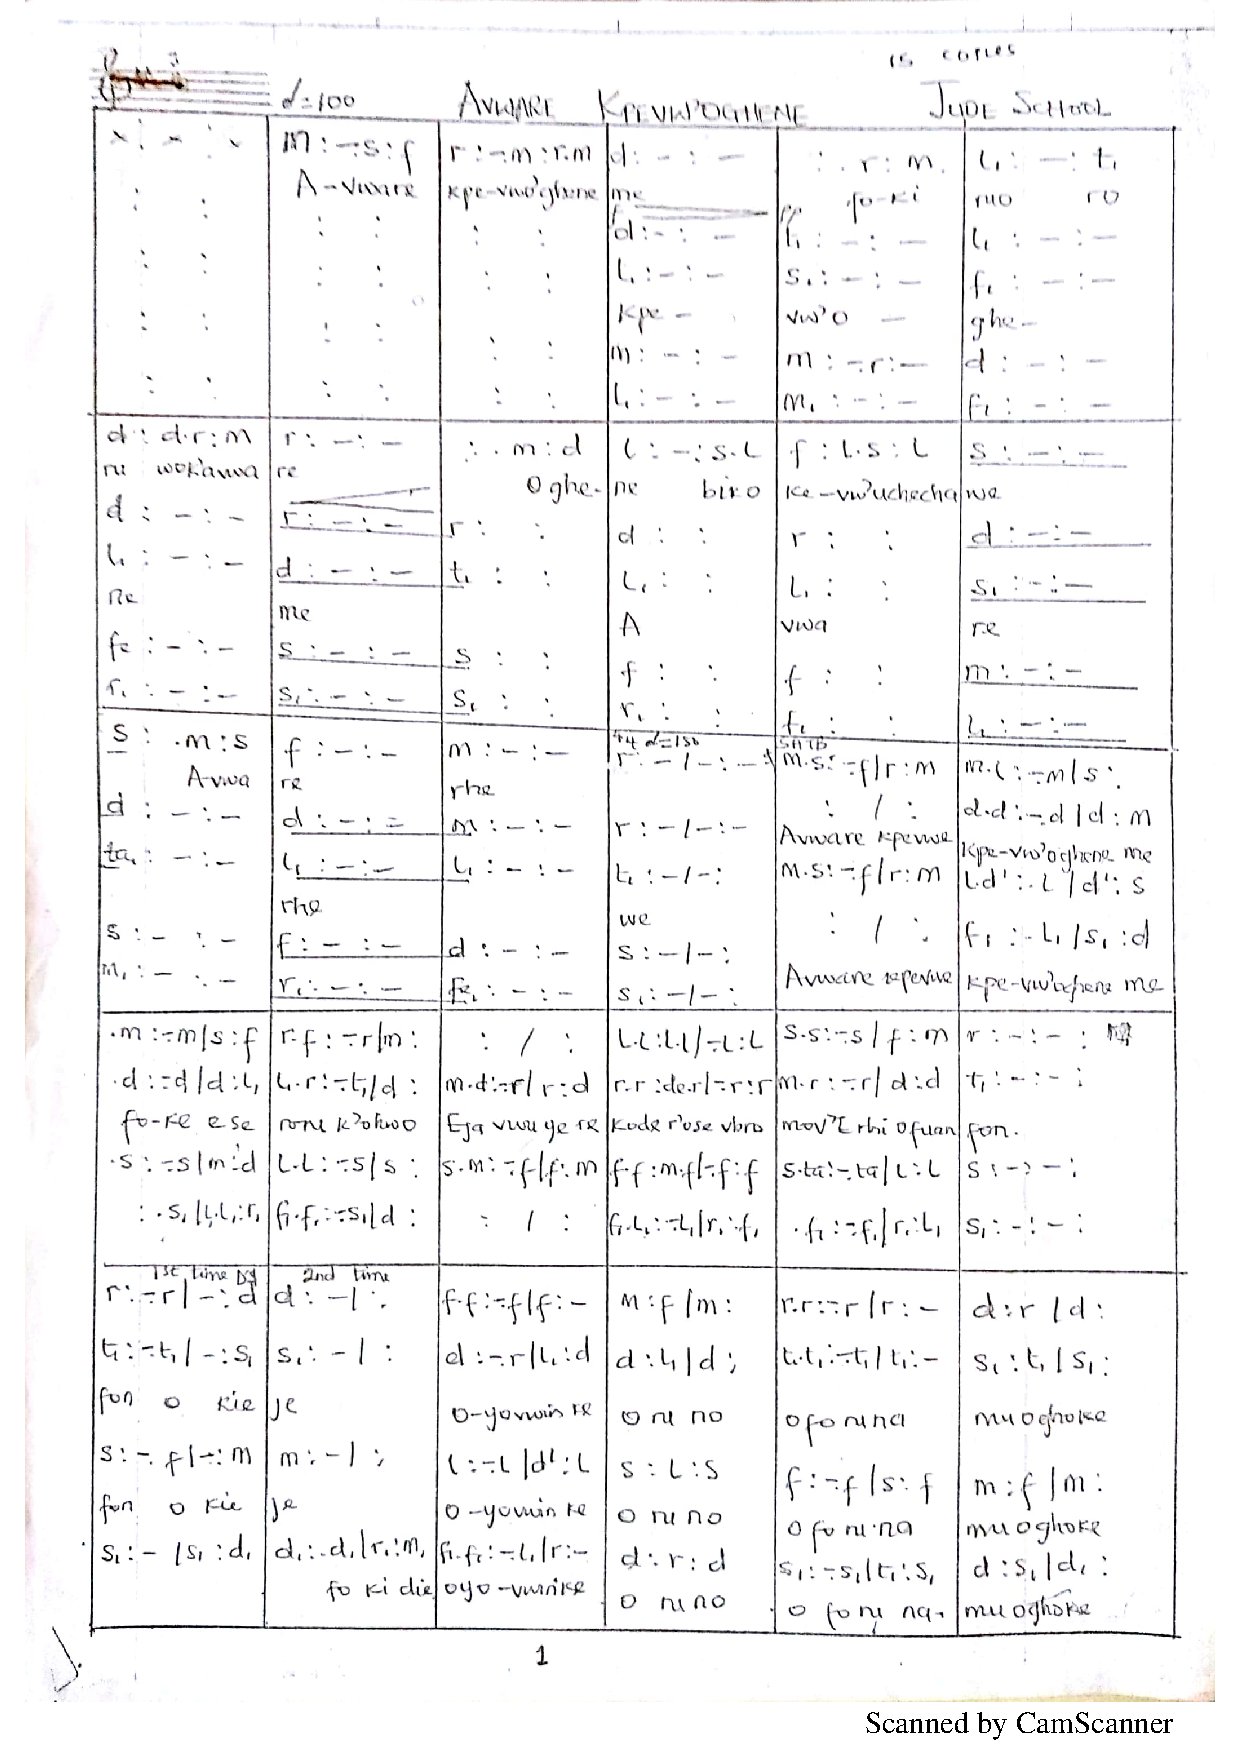 15 copies
d=100 AVWARE KPEVWOGHENE JUDE SCHOOL
x : - : x | m : -.s : f | r : -.m : r.m | d : - : - | : . r : m | l₁ : - : t₁
A-vware | kpe-vwo'ghene | me | fo-ki | ruo ro
: : | : : | : : | d : - : - | t₁ : - : - | l₁ : - : -
: : | : : | : : | l₁ : - : - | s₁ : - : - | f₁ : - : -
kpe - | vw'o - | ghe-
: : | : : | : : | m : - : - | m : -.r : - | d : - : -
: : | : : | : : | l₁ : - : - | m₁ : - : - | f₁ : - : -
d : d.r : m | r : - : - | : . m : d | l : - : s.l | f : l.s : l | s : - : -
ru wok'avwa | re | Oghe- | ne biko | ke-vw'uchecha | we
d : - : - | r : - : - | r : : | d : : | r : : | d : - : -
l₁ : - : - | d : - : - | t₁ : : | l₁ : : | l₁ : : | s₁ : - : -
ne | me | A | vwa | re
fe : - : - | s : - : - | s : : | f : : | f : : | m : - : -
r₁ : - : - | s₁ : - : - | s₁ : : | r₁ : : | f₁ : : | l₁ : - : -
4/4 d=130 | SATB
s : .m : s | f : - : - | m : - : - | r : - / - : - | m.s : -.f / r : m | m.l : -.m / s :
A-vwa | re | rhe
d : - : - | d : - : - | m : - : - | r : - / - : - | : / : | d.d : -.d / d : m
Avware kpevwe | kpe-vw'oghene me
ta₁ : - : - | l₁ : - : - | l₁ : - : - | t₁ : - / - : | m.s : -.f / r : m | l.d' : .l / d' : s
rhe | we
s : - : - | f : - : - | d : - : - | s : - / - : | : / : | f₁ : .l₁ / s₁ : d
m₁ : - : - | r₁ : - : - | fe₁ : - : - | s₁ : - / - :
Avware kpevwe | kpe-vw'oghene me
.m : -.m / s : f | r.f : -.r / m : | : / : | l.l : l.l / -.l : l | s.s : -.s / f : m | r : - : - :
.d : -.d / d : l₁ | l₁.r : -.t₁ / d : | m.d : -.r / r : d | r.r : de.r / -.r : r | m.r : -.r / d : d | t₁ : - : - :
fo-ke ese | roru k'ohwo | Eja vwu ye re | kode r'ose vbro | mov'E rhi ofuan | fon.
.s : -.s / m : d | l.l : -.s / s : | s.m : -.f / f : m | f.f : m.f / -.f : f | s.ta : -.ta / l : l | s : - : - :
: .s₁ / l₁.l₁ : r₁ | f₁.f₁ : -.s₁ / d : | : / : | f₁.l₁ : -.l₁ / r₁ : f₁ | .f₁ : -.f₁ / r₁ : l₁ | s₁ : - : - :
1st time | 2nd time
r : -.r / - : d | d : - / : | f.f : -.f / f : - | m : f / m : | r.r : -.r / r : - | d : r / d :
t₁ : -.t₁ / - : s₁ | s₁ : - / : | d : -.r / l₁ : d | d : l₁ / d : | t₁.t₁ : -.t₁ / t₁ : - | s₁ : t₁ / s₁ :
fon o kie | je | o-yovwin ke | o ru no | oforuna | muoghoke
s : -.f / - : m | m : - / : | l : -.l / d' : l | s : l : s | f : -.f / s : f | m : f / m :
fon o kie | je | o-yovwin ke | o ru no | oforuna | muoghoke
s₁ : - / s₁ : d₁ | d₁ : .d₁ / r₁ : m₁ | f₁.f₁ : -.l₁ / r : - | d : r : d | s₁ : -.s₁ / t₁ : s₁ | d : s₁ / d₁ :
fo ki die | oyo-vwinke | o ru no | o foru na. | muoghoke
1
Scanned by CamScanner